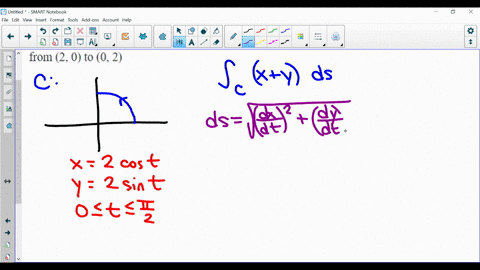 Untitled * - SMART Notebook
File Edit View Insert Format Tools Add-ons Account Help
from (2, 0) to (0, 2)
C:
∫_C (x+y) ds
ds = √((dx/dt)² + (dy/dt
x = 2 cos t
y = 2 sin t
0 ≤ t ≤ π/2